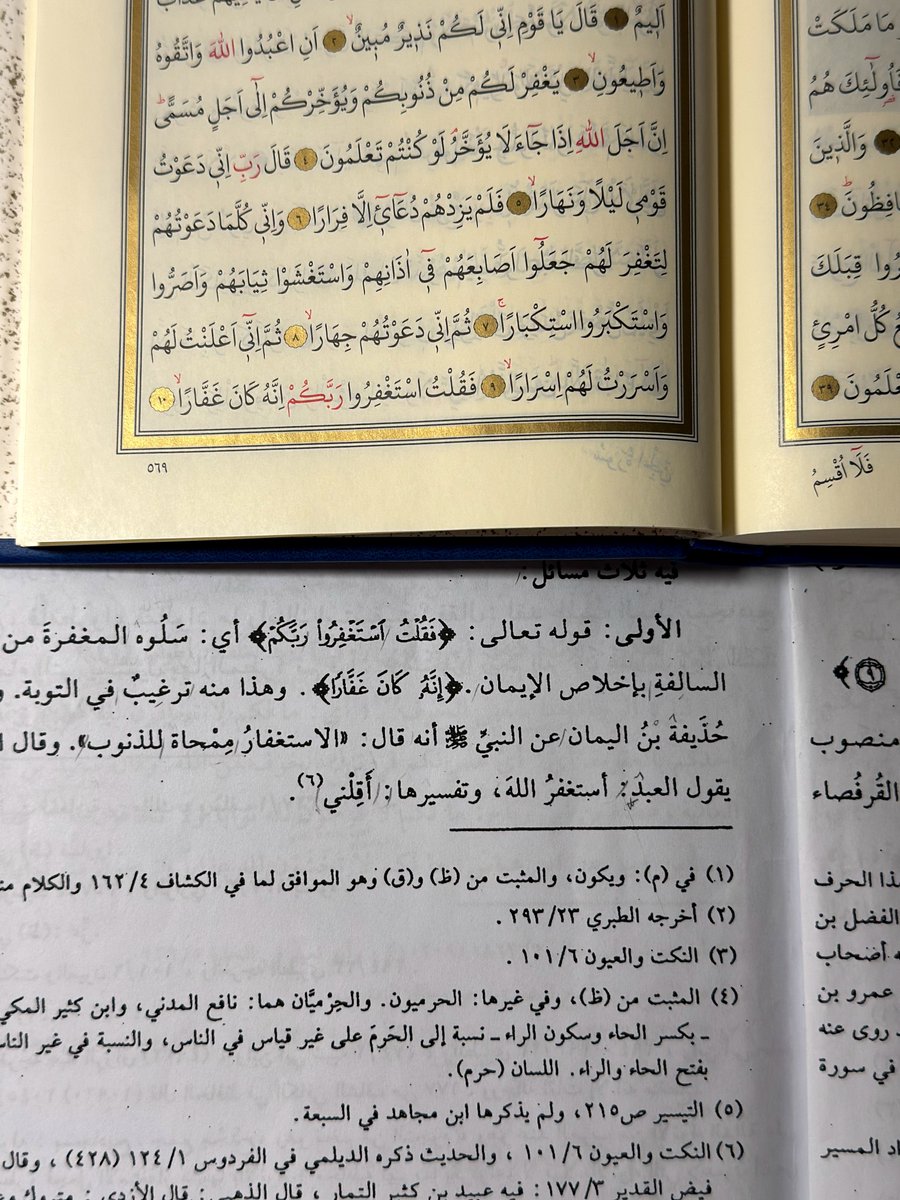 اَلِيمٌ ﴿١﴾ قَالَ يَا قَوْمِ اِنّ۪ي لَكُمْ نَذِيرٌ مُب۪ينٌۙ ﴿٢﴾ اَنِ اعْبُدُوا اللّٰهَ وَاتَّقُوهُ
وَاَط۪يعُونِۙ ﴿٣﴾ يَغْفِرْ لَكُمْ مِنْ ذُنُوبِكُمْ وَيُؤَخِّرْكُمْ اِلٰٓى اَجَلٍ مُسَمًّىۜ
اِنَّ اَجَلَ اللّٰهِ اِذَا جَٓاءَ لَا يُؤَخَّرُۢ لَوْ كُنْتُمْ تَعْلَمُونَ ﴿٤﴾ قَالَ رَبِّ اِنّ۪ي دَعَوْتُ
قَوْم۪ي لَيْلًا وَنَهَارًاۙ ﴿٥﴾ فَلَمْ يَزِدْهُمْ دُعَٓاء۪ٓي اِلَّا فِرَارًا ﴿٦﴾ وَاِنّ۪ي كُلَّمَا دَعَوْتُهُمْ
لِتَغْفِرَ لَهُمْ جَعَلُٓوا اَصَابِعَهُمْ ف۪ٓي اٰذَانِهِمْ وَاسْتَغْشَوْا ثِيَابَهُمْ وَاَصَرُّوا
وَاسْتَكْبَرُوا اسْتِكْبَارًاۚ ﴿٧﴾ ثُمَّ اِنّ۪ي دَعَوْتُهُمْ جِهَارًاۙ ﴿٨﴾ ثُمَّ اِنّ۪ٓي اَعْلَنْتُ لَهُمْ
وَاَسْرَرْتُ لَهُمْ اِسْرَارًاۙ ﴿٩﴾ فَقُلْتُ اسْتَغْفِرُوا رَبَّكُمْ اِنَّهُ كَانَ غَفَّارًاۙ ﴿١٠﴾
٥٦٩
مَا مَلَكَتْ
فَاُولٰٓئِكَ هُمُ
٣٢ وَالَّذ۪ينَ
٣٤
قِبَلَكَ
كُلُّ امْرِئٍ
٣٩
فَلَٓا اُقْسِمُ
فيه ثلاث مسائل:
الأولى: قوله تعالى: ﴿فَقُلْتُ اسْتَغْفِرُوا رَبَّكُمْ﴾ أي: سَلُوه المغفرةَ من
السالفةِ بإخلاص الإيمان. ﴿إِنَّهُ كَانَ غَفَّارًا﴾. وهذا منه ترغيبٌ في التوبة.
حُذَيفةُ بنُ اليمان عن النبيِّ ﷺ أنه قال: «الاستغفارُ مِمْحاة للذنوب». وقال
يقول العبد: أستغفرُ اللهَ، وتفسيرها: أَقِلْني(٦).
(١) في (م): ويكون، والمثبت من (ظ) و(ق) وهو الموافق لما في الكشاف ١٦٢/٤ والكلام
(٢) أخرجه الطبري ٢٩٣/٢٣ .
(٣) النكت والعيون ١٠١/٦ .
(٤) المثبت من (ظ)، وفي غيرها: الحرميون. والحِرْميَّان هما: نافع المدني، وابن كثير المكي
ـ بكسر الحاء وسكون الراء ـ نسبة إلى الحَرَمَ على غير قياس في الناس، والنسبة في غير
بفتح الحاء والراء. اللسان (حرم).
(٥) التيسير ص٢١٥، ولم يذكرها ابن مجاهد في السبعة.
(٦) النكت والعيون ١٠١/٦ ، والحديث ذكره الديلمي في الفردوس ١٢٤/١ (٤٢٨) ، وقال
فيض القدير ١٧٧/٣ : فيه عبيد بن كثير التمار ، قال الذهبي : قال الأزدي : متروك
﴿٩﴾
منصوب
القُرفُصاء
الحرف
الفضل بن
أصحاب
عمرو بن
روى عنه
في سورة
المسير